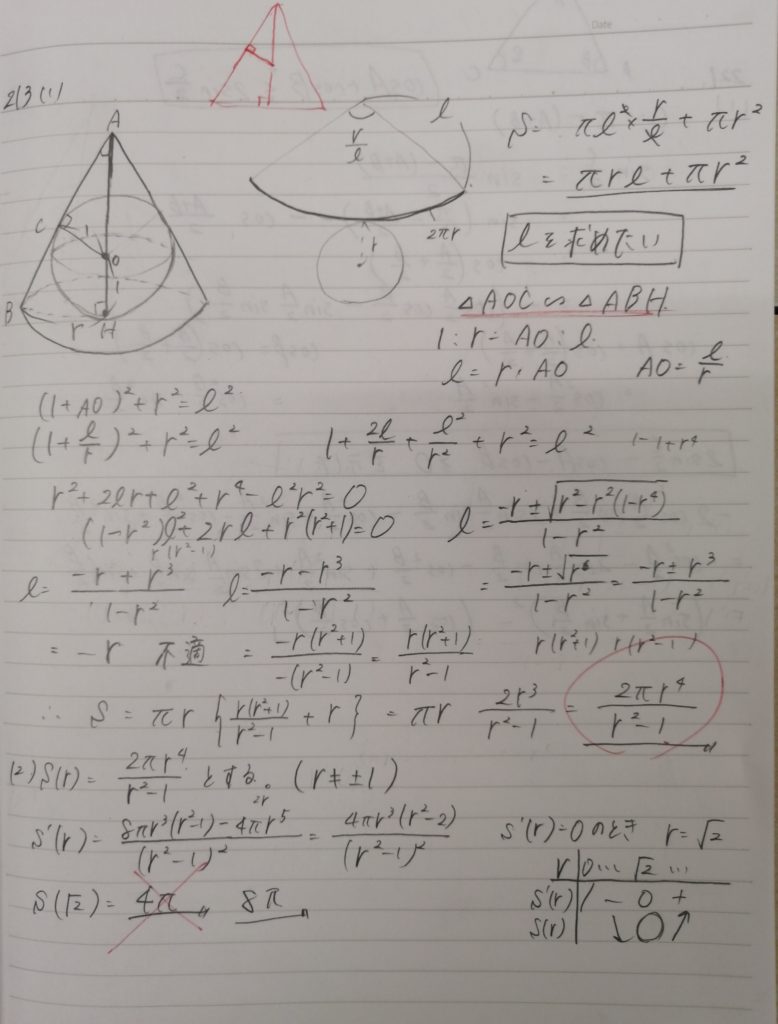 Date
213 (1)
A
C
1
O
1
B
r
H
r/l
l
2πr
r
S = πl² × r/l + πr²
= πrl + πr²
lを求めたい
△AOC ∽ △ABH
1 : r = AO : l
l = r・AO AO = l/r
(1+AO)² + r² = l²
(1 + l/r)² + r² = l² 1 + 2l/r + l²/r² + r² = l² 1-1+r⁴
r² + 2lr + l² + r⁴ - l²r² = 0
(1-r²)l² + 2rl + r²(r²+1) = 0 l = (-r ± √(r² - r²(1-r⁴)))/(1-r²)
r(r²-1)
l = (-r + r³)/(1-r²) l = (-r - r³)/(1-r²) = (-r ± √r⁶)/(1-r²) = (-r ± r³)/(1-r²)
= -r 不適 = -r(r²+1)/-(r²-1) = r(r²+1)/(r²-1) r(r²+1) r(r²-1)
∴ S = πr { r(r²+1)/(r²-1) + r } = πr 2r³/(r²-1) = 2πr⁴/(r²-1)
(2) S(r) = 2πr⁴/(r²-1) とする。 (r ≠ ±1)
2r
S'(r) = (8πr³(r²-1) - 4πr⁵)/(r²-1)² = 4πr³(r²-2)/(r²-1)² S'(r)=0のとき r=√2
r 0 … √2 …
S'(r) / - 0 +
S(r) ↓ ○ ↗
S(√2) = 4π 8π